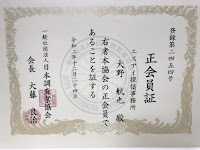 登録第二四五四号
正会員証
エスアイ探偵事務所
大野 航也 殿
右者本協会の正会員で
あることを証する
令和二年十二月二十四日
一般社団法人日本調査業協会
会長 大藤 良治